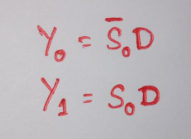 Y₀ = S̅₀D
Y₁ = S₀D